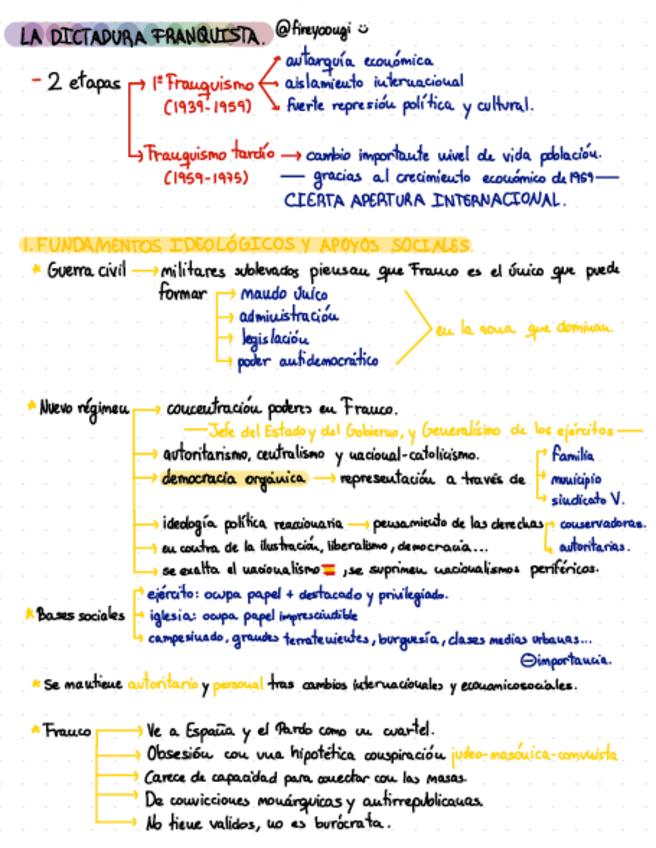 LA DICTADURA FRANQUISTA. @fireyoougi
- 2 etapas → 1º Franquismo → autarquía económica
(1939-1959) → aislamiento internacional
→ fuerte represión política y cultural.
→ Franquismo tardío → cambio importante nivel de vida población.
(1959-1975) — gracias al crecimiento económico de 1959 —
CIERTA APERTURA INTERNACIONAL.
1. FUNDAMENTOS IDEOLÓGICOS Y APOYOS SOCIALES.
* Guerra civil → militares sublevados piensan que Franco es el único que puede
formar → mando único
→ administración
→ legislación
→ poder antidemocrático
en la zona que dominan.
* Nuevo régimen → concentración poderes en Franco.
— Jefe del Estado y del Gobierno, y Generalísimo de los ejércitos —
→ autoritarismo, centralismo y nacional-catolicismo.
→ democracia orgánica → representación a través de → familia
→ municipio
→ sindicato V.
→ ideología política reaccionaria → pensamiento de las derechas → conservadoras.
→ autoritarias.
→ en contra de la ilustración, liberalismo, democracia...
→ se exalta el nacionalismo 🇪🇸, se suprimen nacionalismos periféricos.
* Bases sociales → ejército: ocupa papel + destacado y privilegiado.
→ iglesia: ocupa papel imprescindible
→ campesinado, grandes terratenientes, burguesía, clases medias urbanas...
⊖importancia.
* Se mantiene autoritario y personal tras cambios internacionales y economicosociales.
* Franco → Ve a España y el Pardo como un cuartel.
→ Obsesión con una hipotética conspiración judeo-masónica-comunista
→ Carece de capacidad para conectar con las masas.
→ De convicciones monárquicas y antirrepublicanas.
→ No tiene validos, no es burócrata.